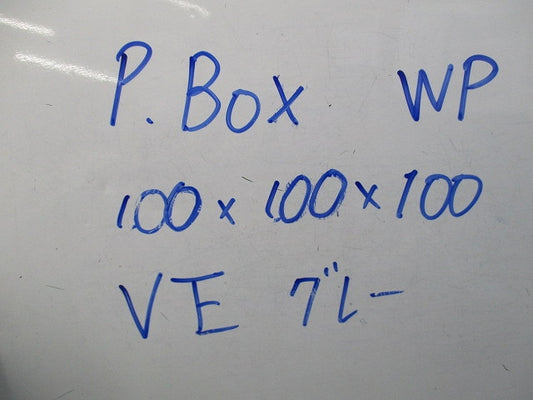 P. BOX WP
100 x 100 x 100
VE グレー